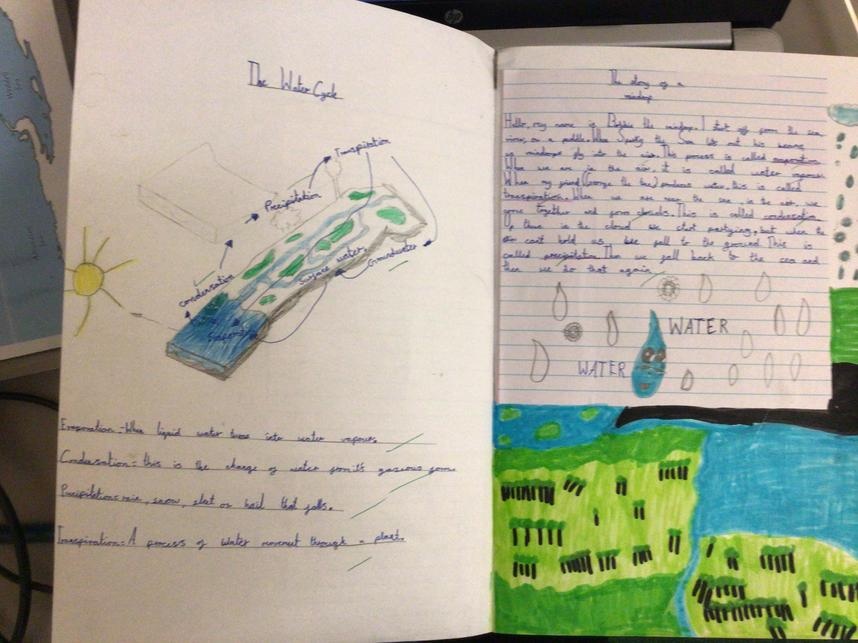 The Water Cycle
Transpiration
Precipitation
Condensation
Surface water
Groundwater
Evaporation:- When liquid water turns into water vapour.
Condensation:- this is the change of water from its gaseous form.
Precipitation:- rain, snow, sleet or hail that falls.
Transpiration:- A process of water movement through a plant.
The story of a
raindrop
Hello, my name is the raindrop. I start off from the sea
river, or a puddle. When the Sun lets out his beams
us raindrops fly into the air. This process is called evaporation
When we are in the air, it is called water vapour
When my friend (George the tree) produces water, this is called
transpiration. When we are near the in the air, we
come together and form clouds. This is called condensation
Up there in the cloud we start partying, but when the
air can't hold us, we fall to the ground. This is
called precipitation. Then we fall back to the sea and
then we do that again.
WATER
WATER